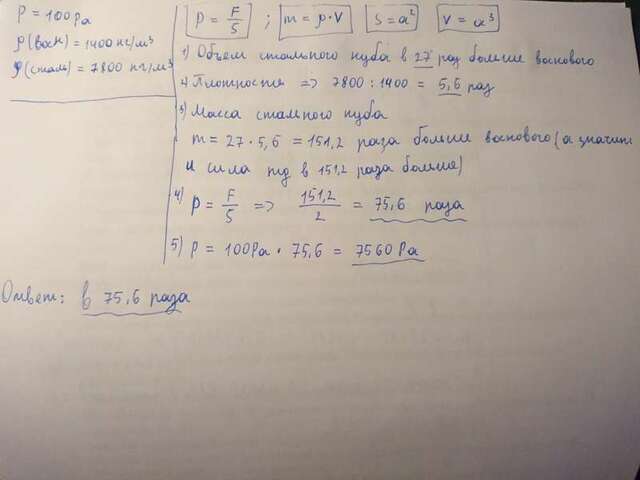 P = 100Pa
ρ(воск) = 1400 кг/м³
ρ(сталь) = 7800 кг/м³
P = F/S ; m = ρ·V S = a² V = a³
1) Объем стального куба в 27 раз больше воскового
2 Плотности => 7800 : 1400 = 5,6 раз
3) Масса стального куба
m = 27 · 5,6 = 151,2 раза больше воскового (а значит
и сила тд в 151,2 раза больше)
4) P = F/S => 151,2/2 = 75,6 раза
5) P = 100Pa · 75,6 = 7560 Pa
Ответ: в 75,6 раза